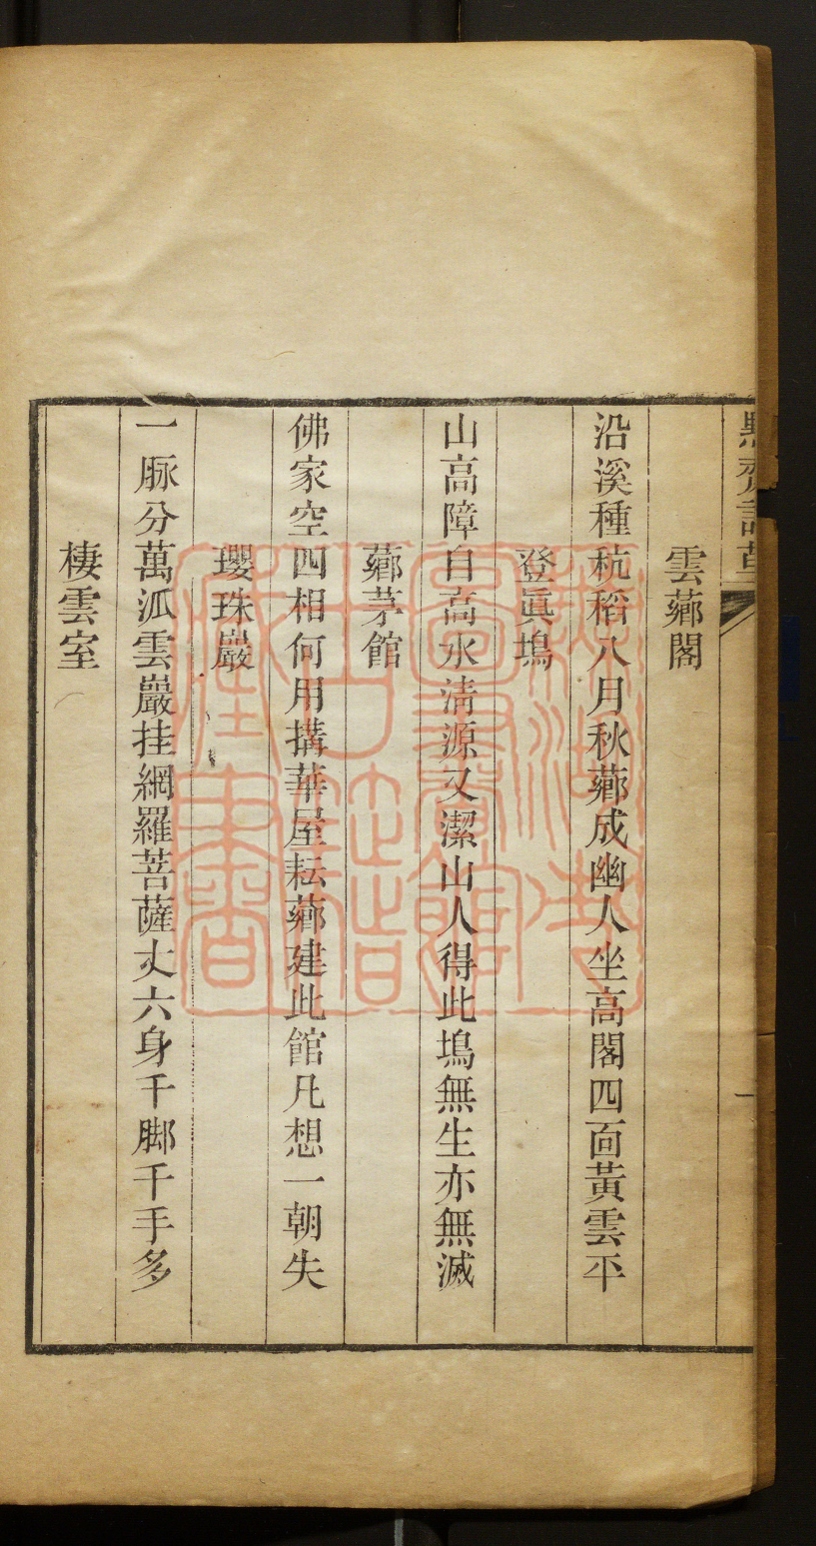 雲薌閣
沿溪種秔稻八月秋薌成幽人坐高閣四面黃雲平
登眞塢
山高障自高水清源又潔山人得此塢無生亦無滅
薌茅館
佛家空四相何用搆華屋耘薌建此館凡想一朝失
瓔珠巖
一脈分萬泒雲巖挂網羅菩薩丈六身千脚千手多
棲雲室